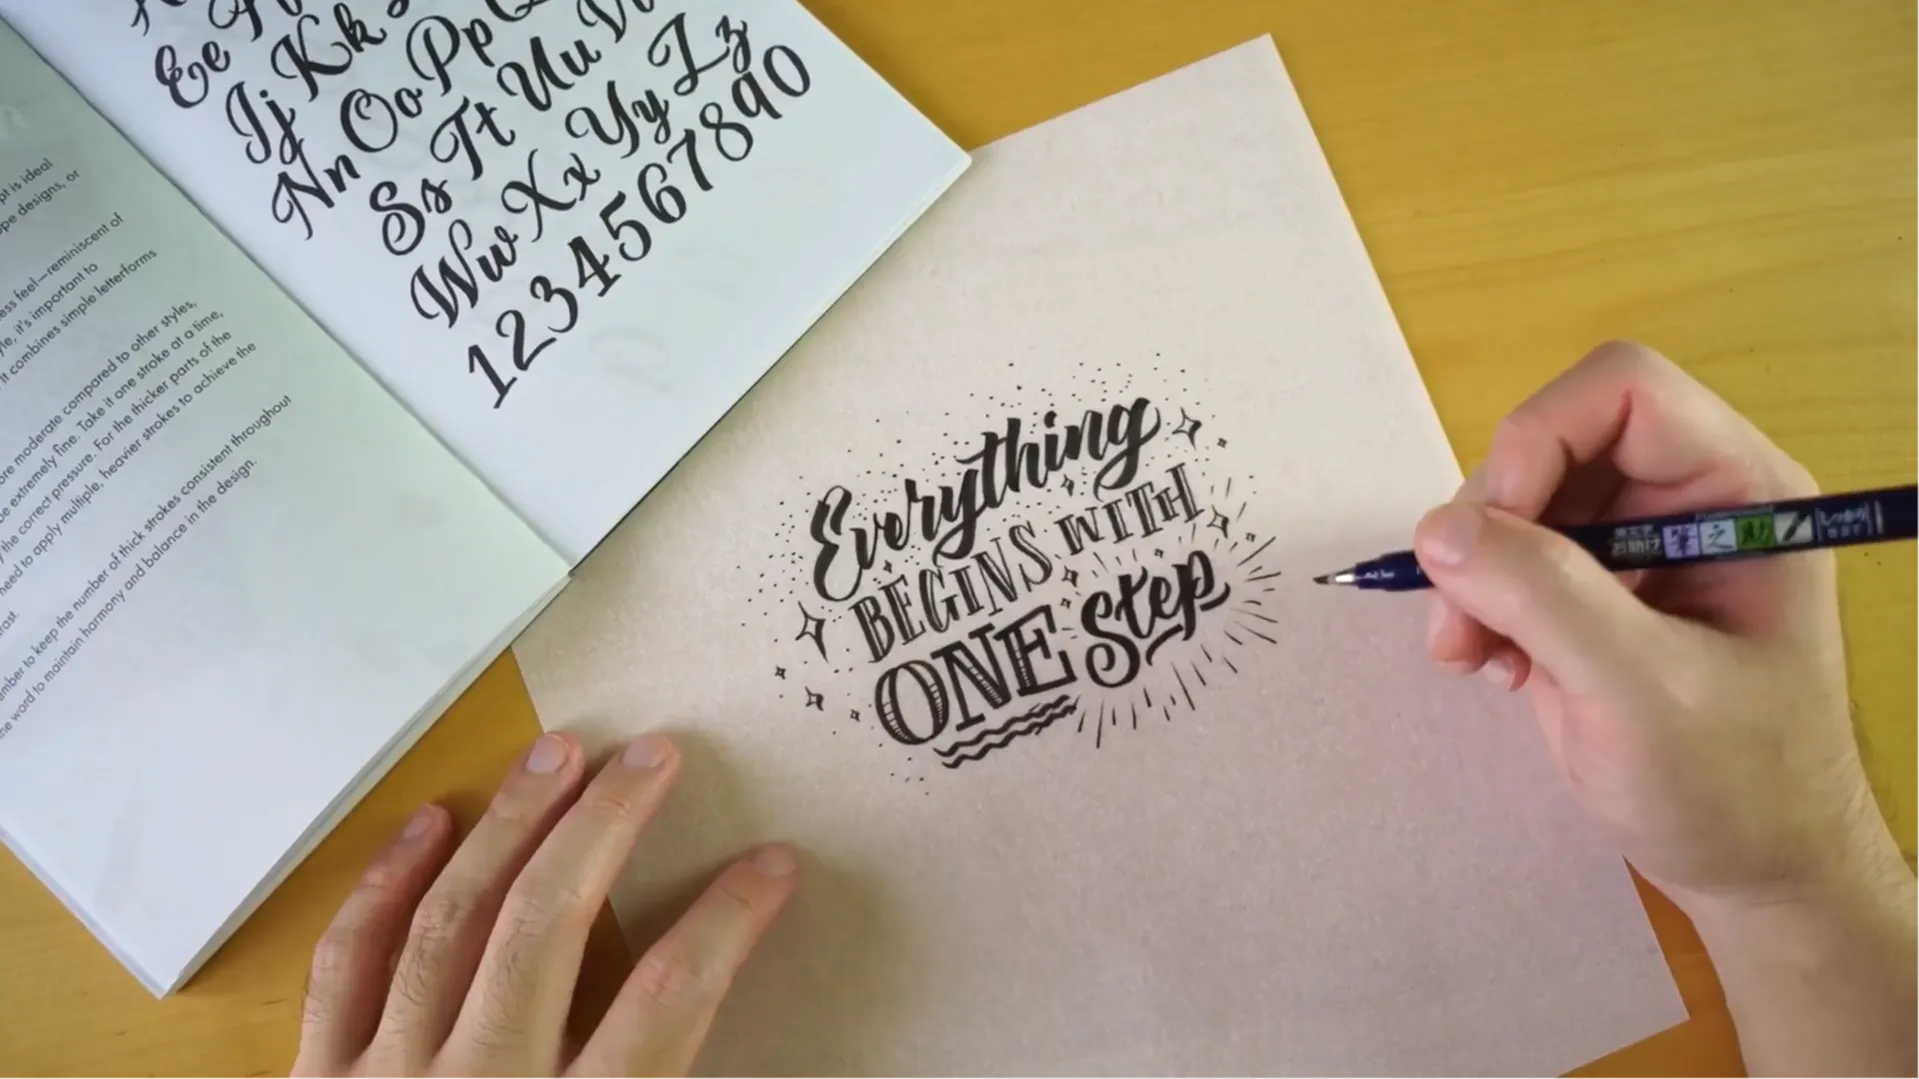 Ee
Ij Kk
Nn Oo Pp
Ss Tt Uu
Ww Xx Yy Zz
1234567890
pt is ideal
designs, or
feel—reminiscent of
it's important to
it combines simple letterforms
more moderate compared to other styles,
be extremely fine. Take it one stroke at a time,
the correct pressure. For the thicker parts of the
need to apply multiple, heavier strokes to achieve the
to keep the number of thick strokes consistent throughout
word to maintain harmony and balance in the design.
Everything
BEGINS WITH
ONE Step